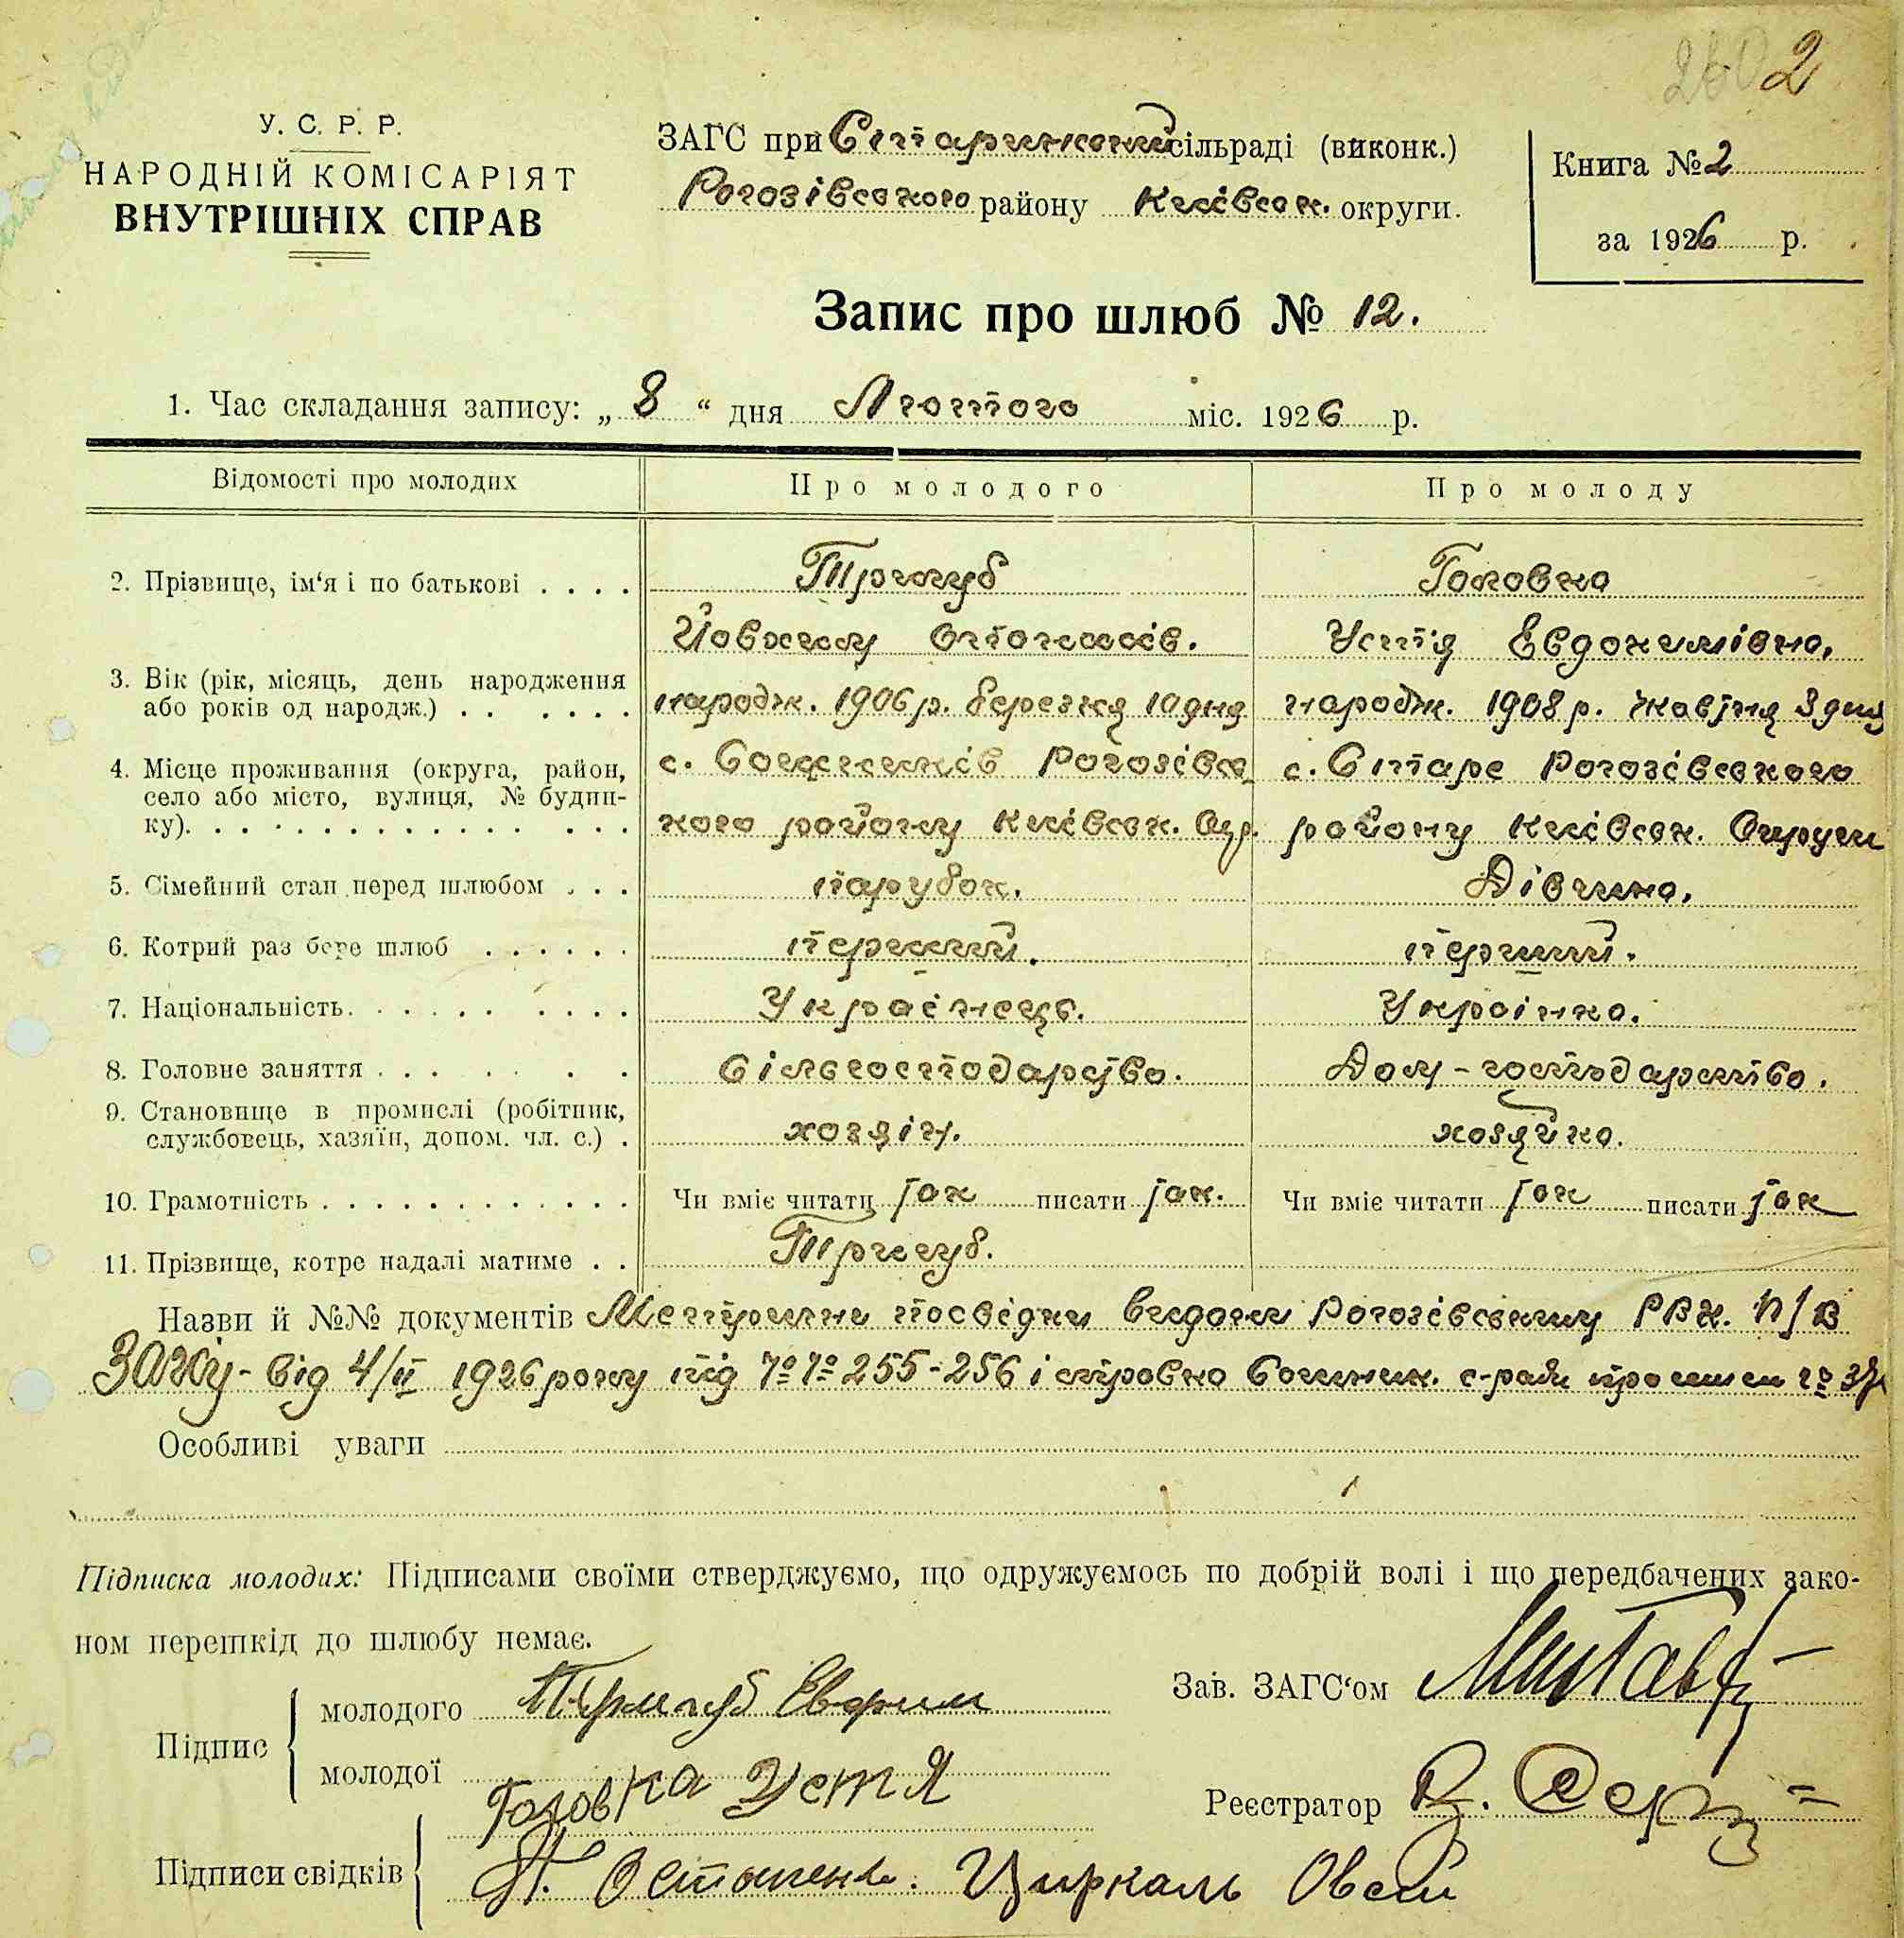 2
У. С. Р. Р.
НАРОДНІЙ КОМІСАРІЯТ
ВНУТРІШНІХ СПРАВ
ЗАГС при Старинській сільраді (виконк.)
Рогозівського району Київськ. округи.
Книга № 2
за 1926 р.
Запис про шлюб № 12.
1. Час складання запису: „ 8 “ дня Лютого міс. 1926 р.
Відомості про молодих
Про молодого
Про молоду
2. Прізвище, ім‘я і по батькові . . . .
Тригуб
Головко
Йовхим
Устія Евдокимівна.
3. Вік (рік, місяць, день народження
або років од народж.) . . . . . .
народж. 1906 р. березня 10 дня
народж. 1908 р. жовтня 3 дня
4. Місце проживання (округа, район,
село або місто, вулиця, № будин-
ку). . . . . . . . . . . . . . .
с. Сошників Рогозівсь
кого району Київськ. Окр.
с. Старе Рогозівського
району Київськ. Округи
5. Сімейний стан перед шлюбом . . .
парубок.
Дівчина.
6. Котрий раз бере шлюб . . . . . .
перший.
перший.
7. Національність. . . . . . . . . .
Українець.
Українка.
8. Головне заняття . . . . . . .
Сільгосподарство.
Дом-господарство.
9. Становище в промислі (робітник,
службовець, хазяїн, допом. чл. с.) .
хозяін.
хозяйка.
10. Грамотність . . . . . . . . . . . .
Чи вміє читати так писати так.
Чи вміє читати так писати так
11. Прізвище, котре надалі матиме . .
Тригуб.
Назви й №№ документів Метричні посвідки видані Рогозівським РВК. П/В
ЗАГСу - від 4/II 1926 року під №№ 255-256 і справка Сошник. с-ради про
Особливі уваги
Підписка молодих: Підписами своїми стверджуємо, що одружуємось по добрій волі і що передбачених зако-
ном перешкід до шлюбу немає.
Зав. ЗАГС‘ом
Підпис
молодого Тригуб Евфим
молодої Головка Устя
Реєстратор
Підписи свідків
Остапенко. Циркаль Овсій